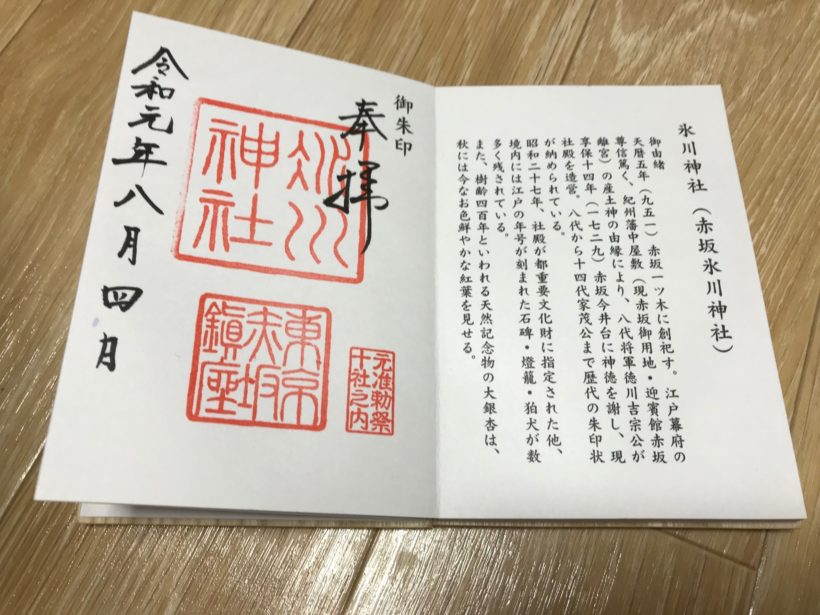 氷川神社（赤坂氷川神社）
御由緒
天暦五年（九五一）赤坂一ツ木に創祀す。江戸幕府の
尊信篤く、紀州藩中屋敷（現赤坂御用地・迎賓館赤坂
離宮）の産土神の由縁により、八代将軍徳川吉宗公が
享保十四年（一七二九）赤坂今井台に神徳を謝し、現
社殿を造営。八代から十四代家茂公まで歴代の朱印状
が納められている。
昭和二十七年、社殿が都重要文化財に指定された他、
境内には江戸の年号が刻まれた石碑・燈籠・狛犬が数
多く残されている。
また、樹齢四百年といわれる天然記念物の大銀杏は、
秋には今なお色鮮やかな紅葉を見せる。
御朱印
奉拝
氷川
神社
元准勅祭
十社之内
東京
赤坂
鎮座
令和元年八月四日